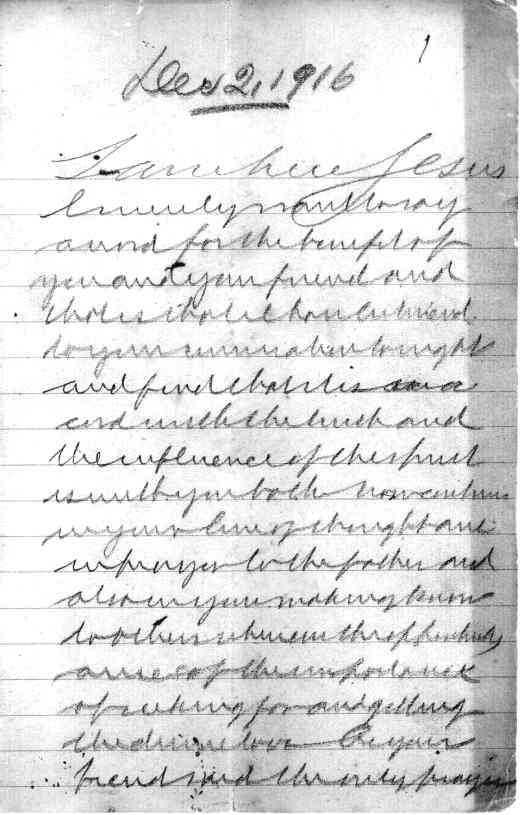 1
Dec 2, 1916
I am here Jesus
I merely want to say
a word for the benefit of
you and your friend and
that is that I have listened
to your conversation tonight
and find that it is in ac
cord with the truth and
the influence of the spirit
is with you both Now continue
in your line of thought and
in prayer to the father and
also in your making known
to others whenever the opportunity
arises of the importance
of seeking for and getting
the divine love As your
friend said the only prayer